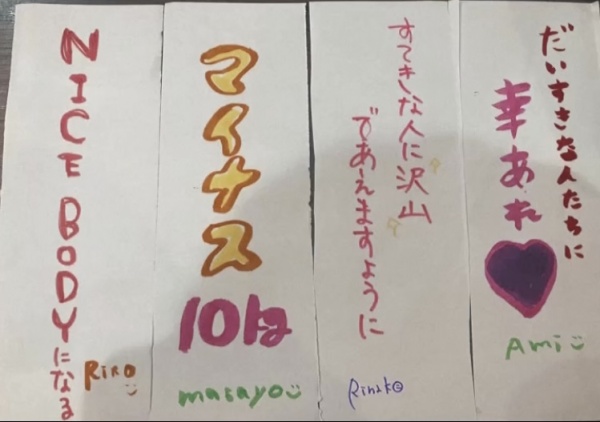 NICE BODYになる
RIRO
マイナス
10kg
masayo
すてきな人に沢山
であえますように
Rinako
だいすきな人たちに
幸あれ
Ami